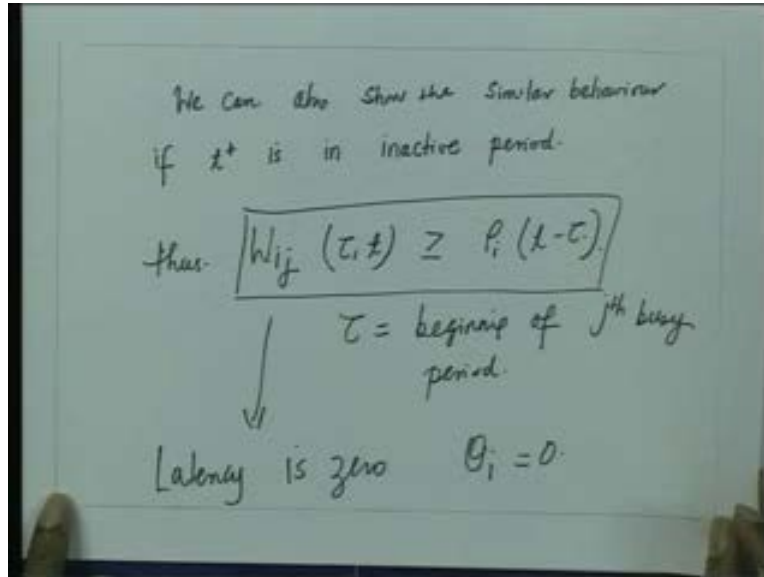 We can also show the similar behaviour
if t⁺ is in inactive period.
thus. W_ij (τ, t) ≥ ρ_i (t-τ).
τ = beginnip of jth busy
period.
Latency is zero θ_i = 0.